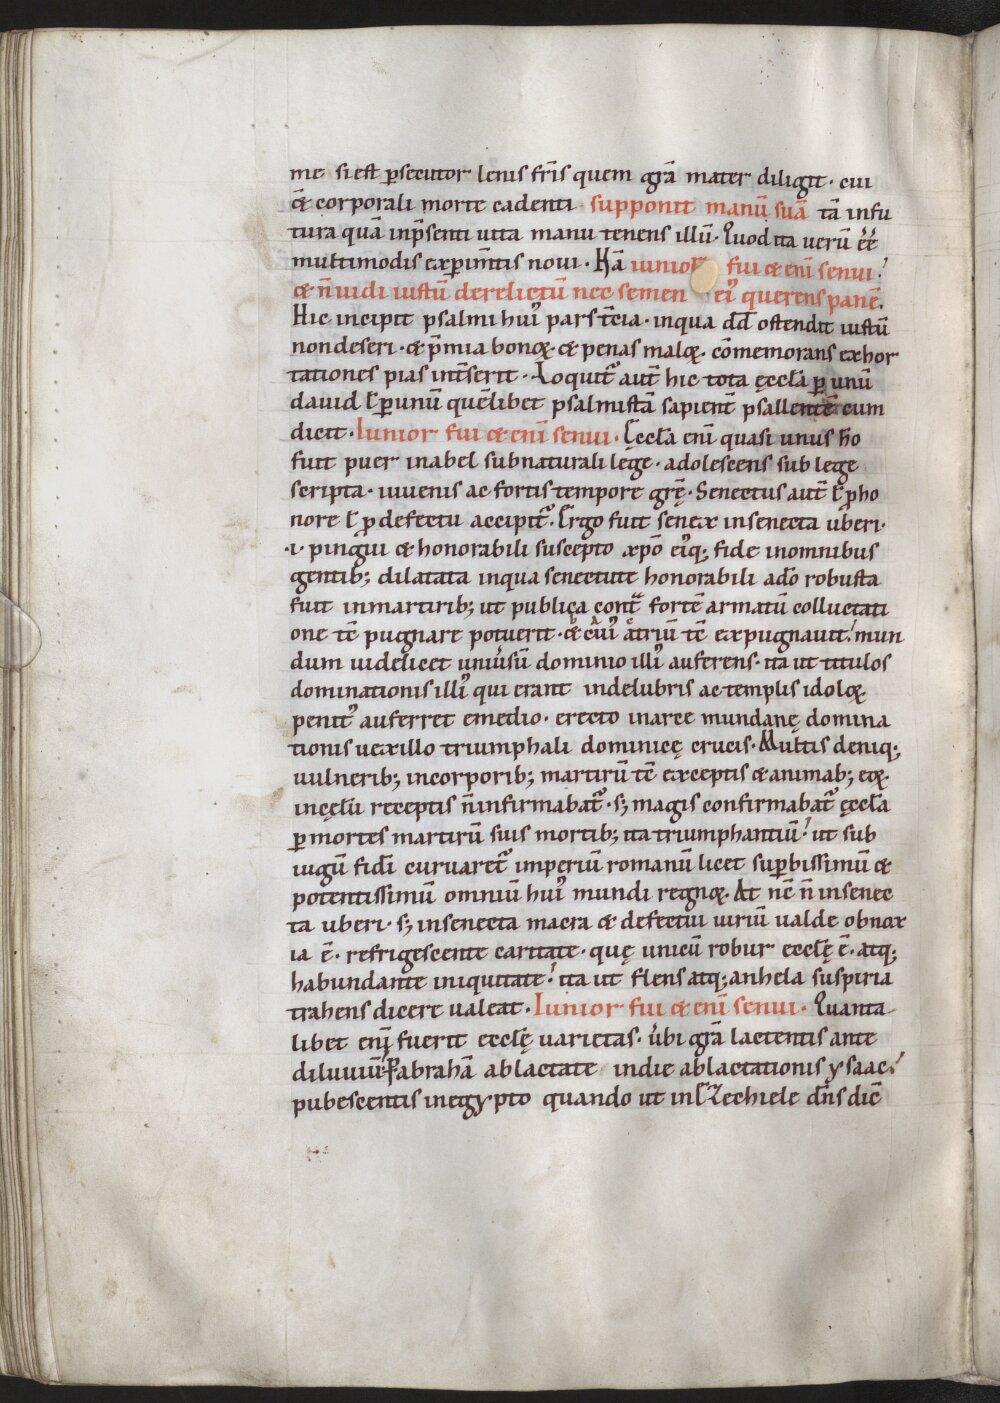 me si est ꝑsecutor lenis fr̄is quem gr̄a mater diligit · cui
& corporali morte cadenti · supponit manū suā tā infu
tura quā inp̄senti uita manu tenens illū · Quod ita uerū eē
multimodis exꝑim̄tis noui · Nā iunior fui & enī senui ·
& n̄ uidi iustū derelictū nec semen ei᾽ querens panē.
Hic incipit psalmi hui᾽ pars t̄cia · inqua dd̄ ostendit iustū
non deseri · & p̄mia bonoꝝ · & penas maloꝝ · cōmemorans exhor
tationes pias int̄serit · Loquit᷑ aut̄ hic tota ęccl̄a ꝑ unū
dauid ł ꝑ unū quēlibet psalmistā sapient̄ psallentē cum
dicit · Iunior fui & enī senui · Ęccl̄a enī quasi unus hō
fuit puer inabel subnaturali lege · adolescens sub lege
scripta · iuuenis ac fortis tempore gr̄ę · Senectus aut̄ ł ꝓ ho
nore ł ꝓ defectu accipit᷑ · Ergo fuit senex insenecta uberi ·
· i · pingui & honorabili suscepto xp̄o ei᾽q; fide inomnibus
gentib; dilatata inqua senectute honorabili ad̄o robusta
fuit inmartirib; ut publica cont̃ fortē armatū colluctati
one tē pugnare potuerit · & cui᾽ atriū tē expugnauit · mun
dum uidelicet uniu̾sū dominio illi᾽ auferens · ita ut titulos
dominationis illi᾽ qui erant indelubris ac templis idoloꝝ
penit᾽ auferret emedio · erecto inarce mundanę domina
tionis uexillo triumphali dominicę crucis · Multis deniq;
uulnerib; incorporib; martirū tē exceptis & animab; eoꝝ
incęlū receptis n̄ infirmabat᷑ · s; magis confirmabat᷑ ęccl̄a
ꝑ mortes martirū suis mortib; ita triumphantiū · ut sub
iugū fidī curuaret᷑ imperiū romanū licet suꝑbissimū &
potentissimū omniū hui᾽ mundi regnoꝝ · At nc̄ n̄ insenec
ta uberi · s; insenecta macra & defectiu uiriū ualde obnox
ia ē · refrigescente caritate · quę unicū robur eccl̄ę ē · atq;
habundante iniquitate · ita ut flens atq; anhela suspiria
trahens dicere ualeat · Iunior fui & enī senui · Quanta
libet enī fuerit eccl̄ę uarietas · ubi gr̄a lactentis ante
diluuiū · abrahā ablactate indie ablactationis ysaac ·
pubescentis inegypto quando ut in Iezechiele dn̄s diē